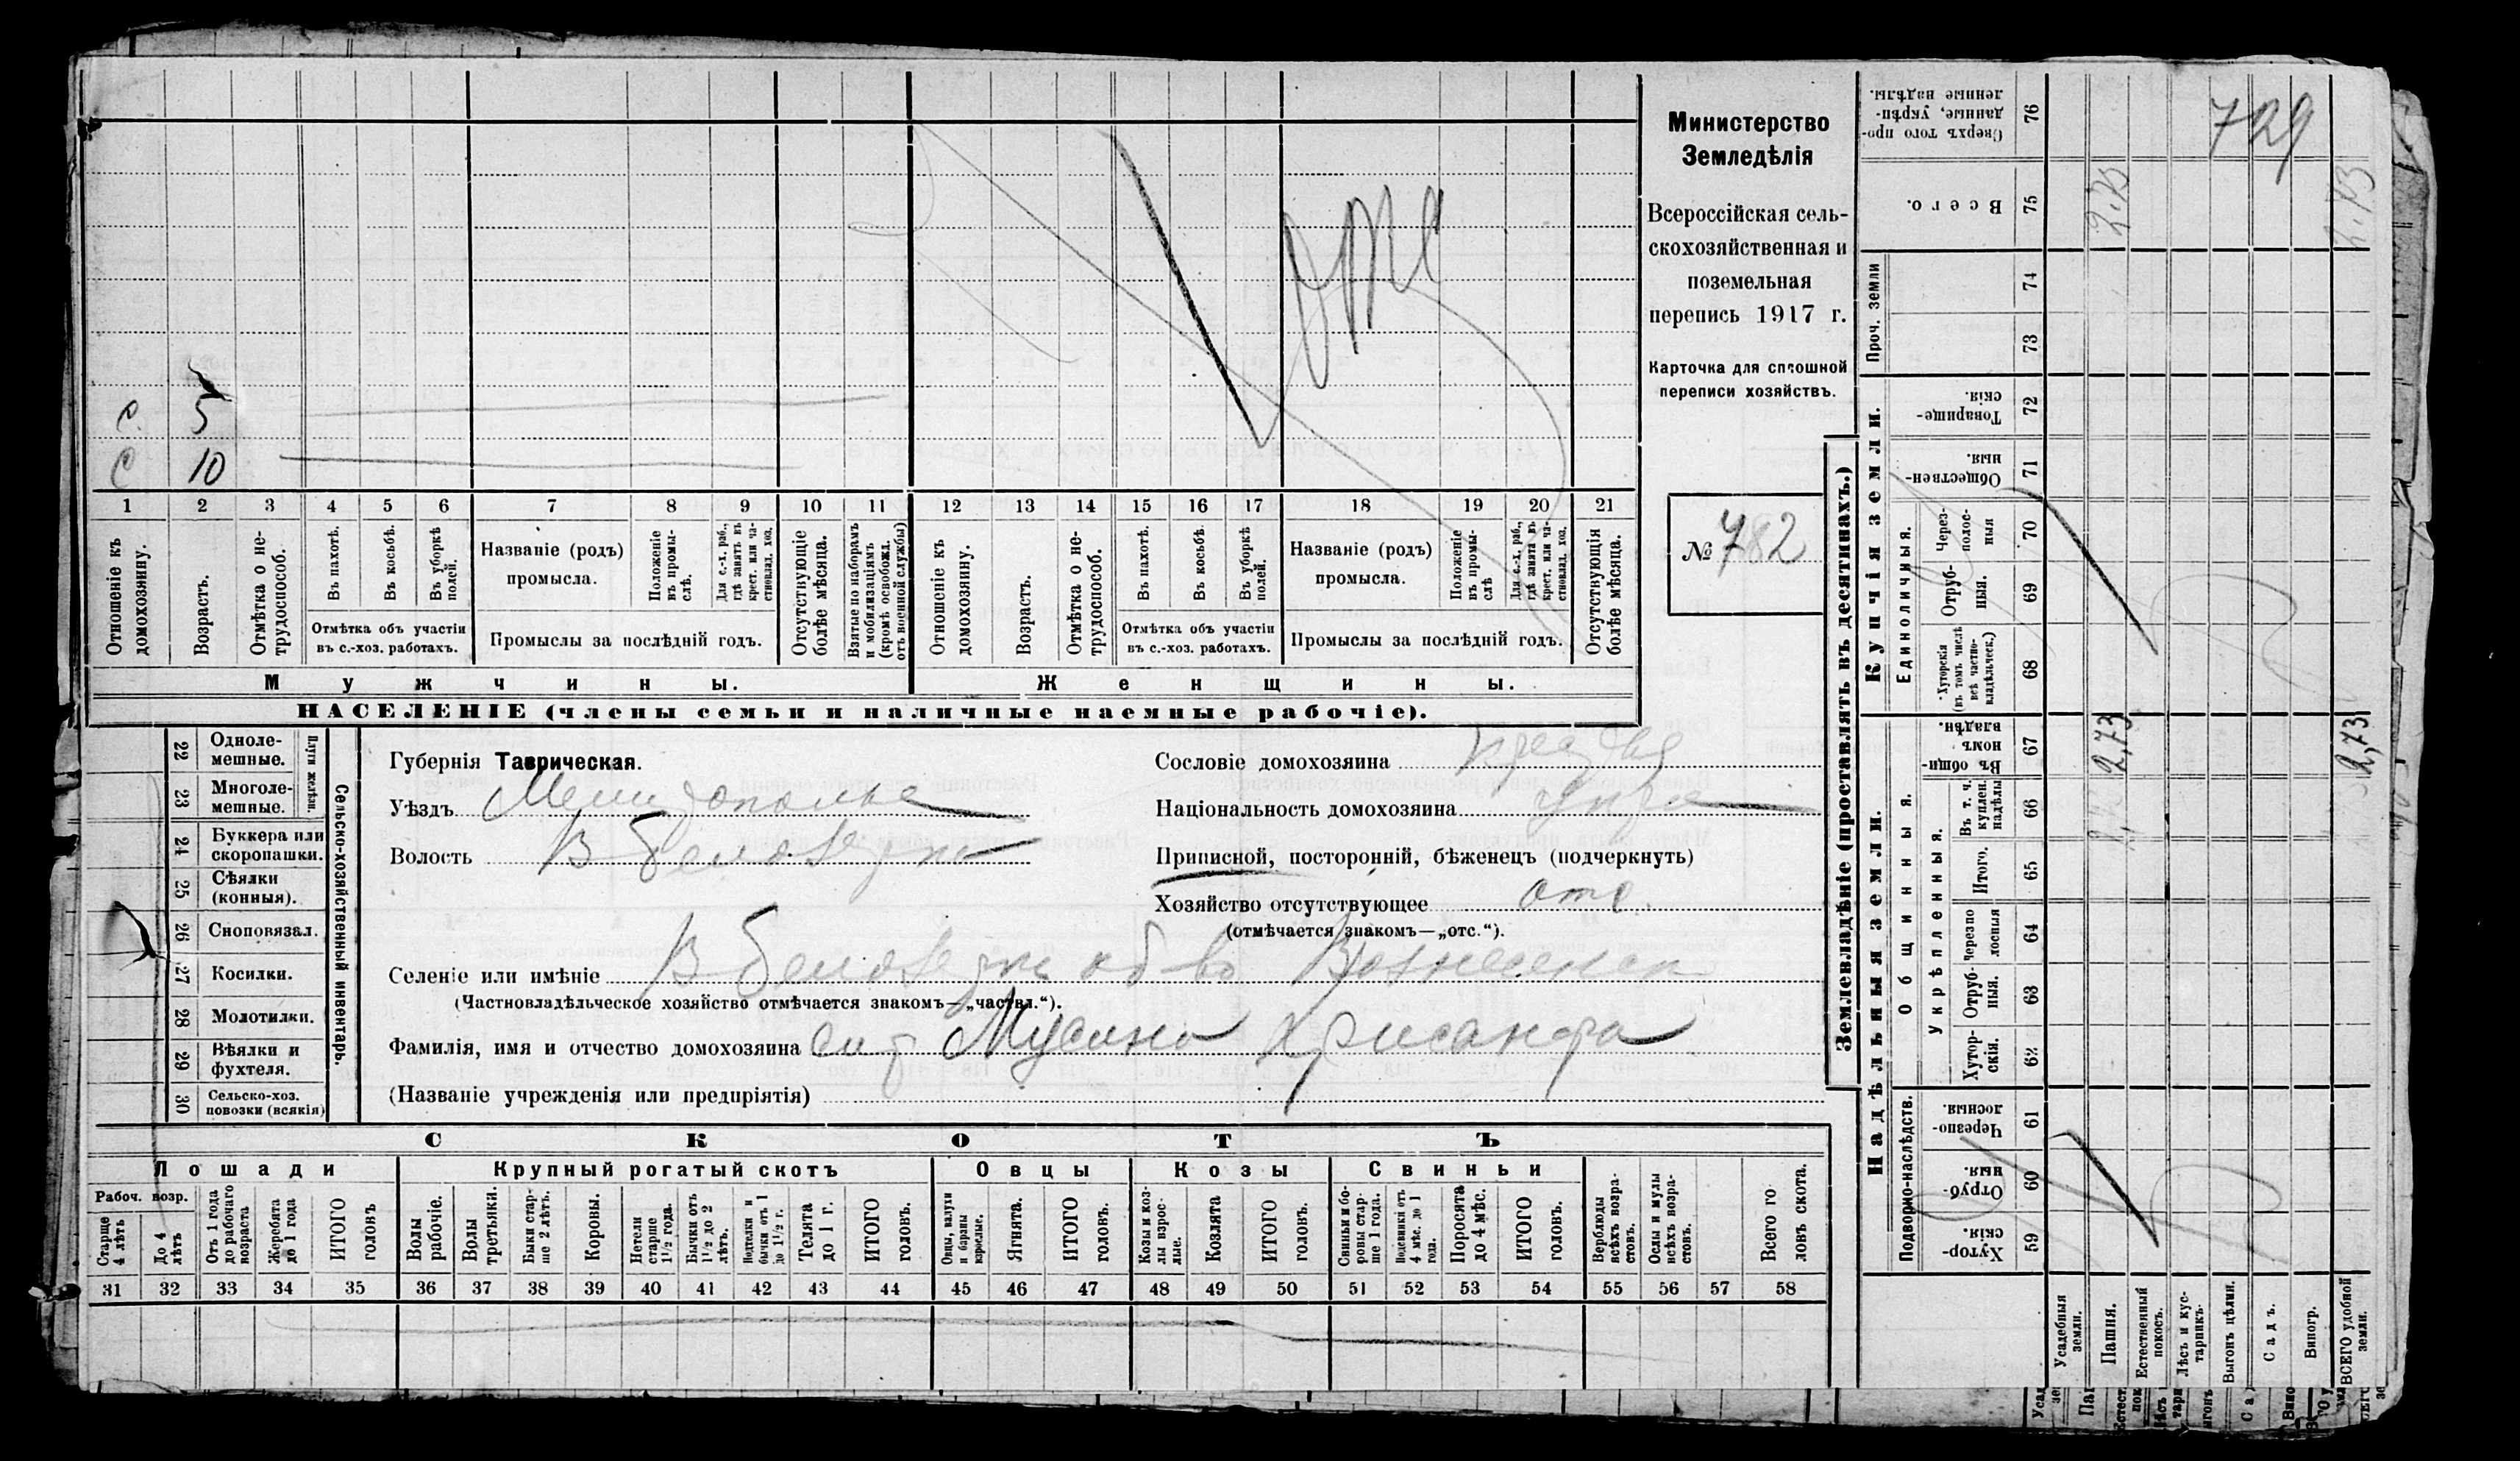 отс
С. 5
С 10
1 2 3 4 5 6 7 8 9 10 11 12 13 14 15 16 17 18 19 20 21
Отношеніе къ домохозяину.
Возрастъ.
Отмѣтка о не-трудоспособ.
Въ пахотѣ.
Въ косьбѣ.
Въ уборкѣ полей.
Отмѣтка объ участіи
въ с.-хоз. работахъ.
Названіе (родъ)
промысла.
Положеніе въ промы-слѣ.
Для с.-х. раб., гдѣ занятъ въ крест. или ча-стновлад. хоз.
Промыслы за послѣдній годъ.
Отсутствующіе болѣе мѣсяца.
Взятые по наборамъ и мобилизаціямъ (кромѣ освобожд. отъ военной службы)
Отношеніе къ домохозяину.
Возрастъ.
Отмѣтка о не-трудоспособ.
Въ пахотѣ.
Въ косьбѣ.
Въ уборкѣ полей.
Отмѣтка объ участіи
въ с.-хоз. работахъ.
Названіе (родъ)
промысла.
Положеніе въ промы-слѣ
Для с.-х. раб., гдѣ занята въ крест. или ча-стновлад. хоз.
Промыслы за послѣдній годъ.
Отсутствующія болѣе мѣсяца.
Мужчины.
Женщины.
НАСЕЛЕНІЕ (члены семьи и наличные наемные рабочіе).
Министерство
Земледѣлія
Всероссійская сель-
скохозяйственная и
поземельная
перепись 1917 г.
Карточка для сплошной
переписи хозяйствъ.
№ 782
Сельско-хозяйственный инвентарь.
Плуги желѣзн.
22 Одноле-
мешные.
23 Многоле-
мешные.
24 Буккера или
скоропашки.
25 Сѣялки
(конныя).
26 Сноповязал.
27 Косилки.
28 Молотилки.
29 Вѣялки и
фухтеля.
30 Сельско-хоз.
повозки (всякія)
Губернія Таврическая.
Уѣздъ
Волость В Белозерка
Селеніе или имѣніе В Белозерка об во Вознесенск
(Частновладѣльческое хозяйство отмѣчается знакомъ—„частвл.“).
Фамилія, имя и отчество домохозяина сир Мусина Хрисанфа
(Названіе учрежденія или предпріятія)
Сословіе домохозяина
Національность домохозяина
Приписной, посторонній, бѣженецъ (подчеркнуть)
Хозяйство отсутствующее отс
(отмѣчается знакомъ—„отс.“).
СКОТЪ
Лошади
Крупный рогатый скотъ
Овцы
Козы
Свиньи
Рабоч. возр.
Старше 4 лѣтъ
До 4 лѣтъ
Отъ 1 года до рабочаго возраста
Жеребята до 1 года
ИТОГО головъ
Волы рабочіе.
Волы третьяки.
Быки стар-ше 2 лѣтъ.
Коровы.
Нетели старше 1½ года.
Бычки отъ 1½ до 2 лѣтъ.
Подтелки и бычки отъ 1 до 1½ г.
Телята до 1 г.
ИТОГО головъ.
Овцы, валухи и бараны взрослые.
Ягнята.
ИТОГО головъ.
Козы и коз-лы взрос-лые.
Козлята
ИТОГО головъ.
Свиньи и бо-ровы стар-ше 1 года.
Подсвинки отъ 4 мѣс. до 1 года.
Поросята до 4 мѣс.
ИТОГО головъ.
Верблюды всѣхъ возра-стовъ.
Ослы и мулы всѣхъ возра-стовъ.
Всего го
ловъ скота.
31 32 33 34 35 36 37 38 39 40 41 42 43 44 45 46 47 48 49 50 51 52 53 54 55 56 57 58
Землевладѣніе (проставлять въ десятинахъ.)
Надѣльныя земли.
Купчія земли.
Проч. земли
Подворно-наслѣдств.
Общинныя.
Укрѣпленныя.
Единоличныя.
59 Хутор-скія.
60 Отруб-ныя.
61 Черезпо-лосныя.
62 Хутор-скія.
63 Отруб-ныя.
64 Черезпо лосныя
65 Итого.
66 Въ т. ч. куплен. надѣлы
67 Въ общи-номъ владѣн.
68 Хуторскія (въ томъ числѣ всѣ частно-владѣльческ.)
69 Отруб-ныя.
70 Через-полос-ныя
71 Обществен-ныя.
72 Товарище-скія.
73
74
75 Всего.
76 Сверхъ того про-данные, укрѣп-ленные надѣлы.
Усадебныя земли.
Пашня.
Естественный покосъ.
Лѣсъ и кус-тарникъ.
Выгонъ цѣлин.
Садъ.
Виногр.
ВСЕГО удобной земли.
729
2,73
2,73